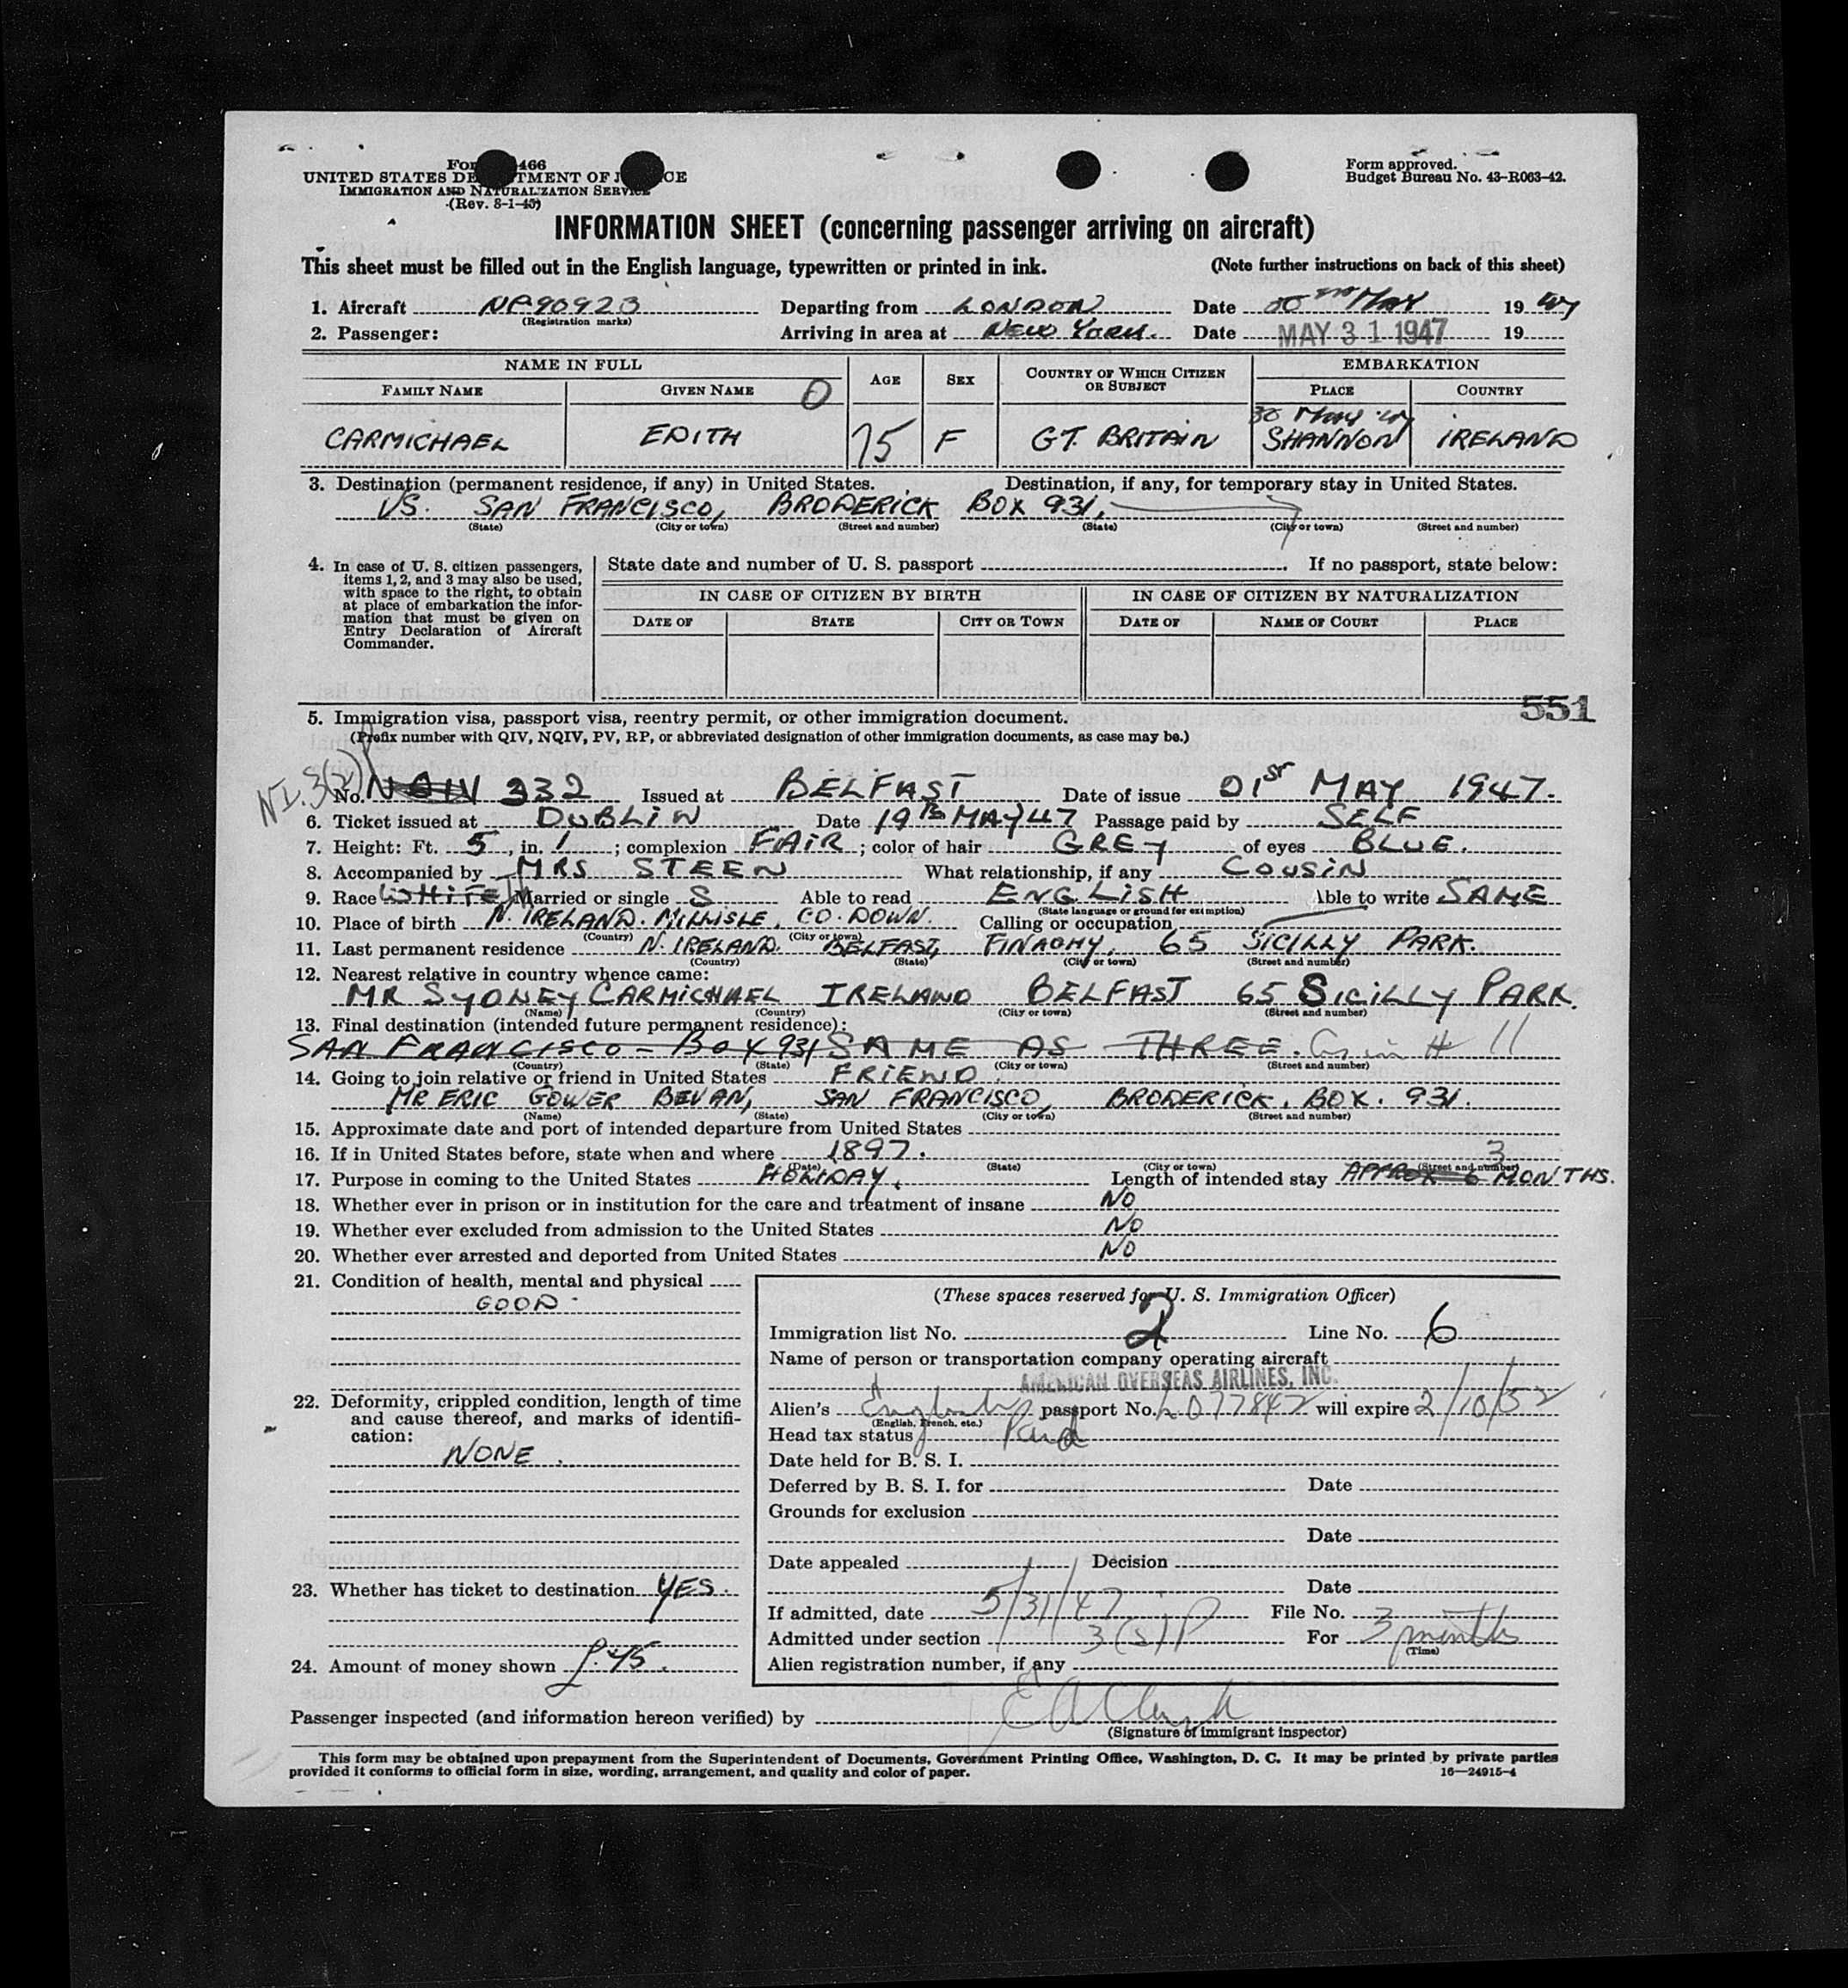 466
UNITED STATES DE TMENT OF J CE
IMMIGRATION AND NATURALIZATION SERVICE
(Rev. 8-1-45)
Form approved.
Budget Bureau No. 43-R063-42.
INFORMATION SHEET (concerning passenger arriving on aircraft)
This sheet must be filled out in the English language, typewritten or printed in ink. (Note further instructions on back of this sheet)
1. Aircraft Departing from LONDON Date MAY 19 47
(Registration marks)
2. Passenger: Arriving in area at NEW YORK. Date MAY 31 1947 19
NAME IN FULL AGE SEX COUNTRY OF WHICH CITIZEN OR SUBJECT EMBARKATION
FAMILY NAME GIVEN NAME PLACE COUNTRY
30 May 47
CARMICHAEL EDITH 75 F GT. BRITAIN SHANNON IRELAND
3. Destination (permanent residence, if any) in United States. Destination, if any, for temporary stay in United States.
US. SAN FRANCISCO, BRODERICK BOX 931.
(State) (City or town) (Street and number) (State) (City or town) (Street and number)
4. In case of U. S. citizen passengers, items 1, 2, and 3 may also be used, with space to the right, to obtain at place of embarkation the information that must be given on Entry Declaration of Aircraft Commander.
State date and number of U. S. passport . If no passport, state below:
IN CASE OF CITIZEN BY BIRTH IN CASE OF CITIZEN BY NATURALIZATION
DATE OF STATE CITY OR TOWN DATE OF NAME OF COURT PLACE
551
5. Immigration visa, passport visa, reentry permit, or other immigration document.
(Prefix number with QIV, NQIV, PV, RP, or abbreviated designation of other immigration documents, as case may be.)
No. NQIV 332 Issued at BELFAST Date of issue 01ST MAY 1947.
6. Ticket issued at DUBLIN Date 19th MAY 47 Passage paid by SELF
7. Height: Ft. 5, in. 1; complexion FAIR; color of hair GREY of eyes BLUE.
8. Accompanied by MRS STEEN What relationship, if any COUSIN
9. Race WHITE Married or single S Able to read ENGLISH Able to write SAME
(State language or ground for exemption)
10. Place of birth N. IRELAND. MILLISLE, CO. DOWN. Calling or occupation
(Country) (City or town)
11. Last permanent residence N. IRELAND. BELFAST, FINAGHY, 65 SICILLY PARK.
(Country) (State) (City or town) (Street and number)
12. Nearest relative in country whence came:
MR SYDNEY CARMICHAEL IRELAND BELFAST 65 SICILLY PARK.
(Name) (Country) (City or town) (Street and number)
13. Final destination (intended future permanent residence):
SAN FRANCISCO - BOX 931 SAME AS THREE. As in # 11
(Country) (State) (City or town) (Street and number)
14. Going to join relative or friend in United States FRIEND.
MR ERIC GOWER BEVAN, SAN FRANCISCO, BRODERICK. BOX. 931.
(Name) (State) (City or town) (Street and number)
15. Approximate date and port of intended departure from United States
16. If in United States before, state when and where 1897.
(Date) (State) (City or town) (Street and number)
17. Purpose in coming to the United States HOLIDAY. Length of intended stay APPROX 6 3 MONTHS.
18. Whether ever in prison or in institution for the care and treatment of insane NO
19. Whether ever excluded from admission to the United States NO
20. Whether ever arrested and deported from United States NO
21. Condition of health, mental and physical
GOOD
22. Deformity, crippled condition, length of time and cause thereof, and marks of identification:
NONE.
23. Whether has ticket to destination YES.
24. Amount of money shown £45.
(These spaces reserved for U. S. Immigration Officer)
Immigration list No. 2 Line No. 6
Name of person or transportation company operating aircraft
AMERICAN OVERSEAS AIRLINES, INC.
Alien's English passport No. L077842 will expire 2/10/52
(English, French, etc.)
Head tax status Paid
Date held for B. S. I.
Deferred by B. S. I. for Date
Grounds for exclusion
Date
Date appealed Decision
Date
If admitted, date 5/31/47 File No.
Admitted under section 3(2) P For 3 months
(Time)
Alien registration number, if any
Passenger inspected (and information hereon verified) by
(Signature of immigrant inspector)
This form may be obtained upon prepayment from the Superintendent of Documents, Government Printing Office, Washington, D. C. It may be printed by private parties
provided it conforms to official form in size, wording, arrangement, and quality and color of paper. 16—24915-4